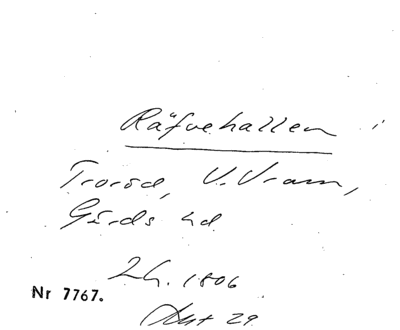 Räfvehallen
Troröd, V. Vram,
Gärds hd
2h. 1806
Nr 7767.
Akt 29